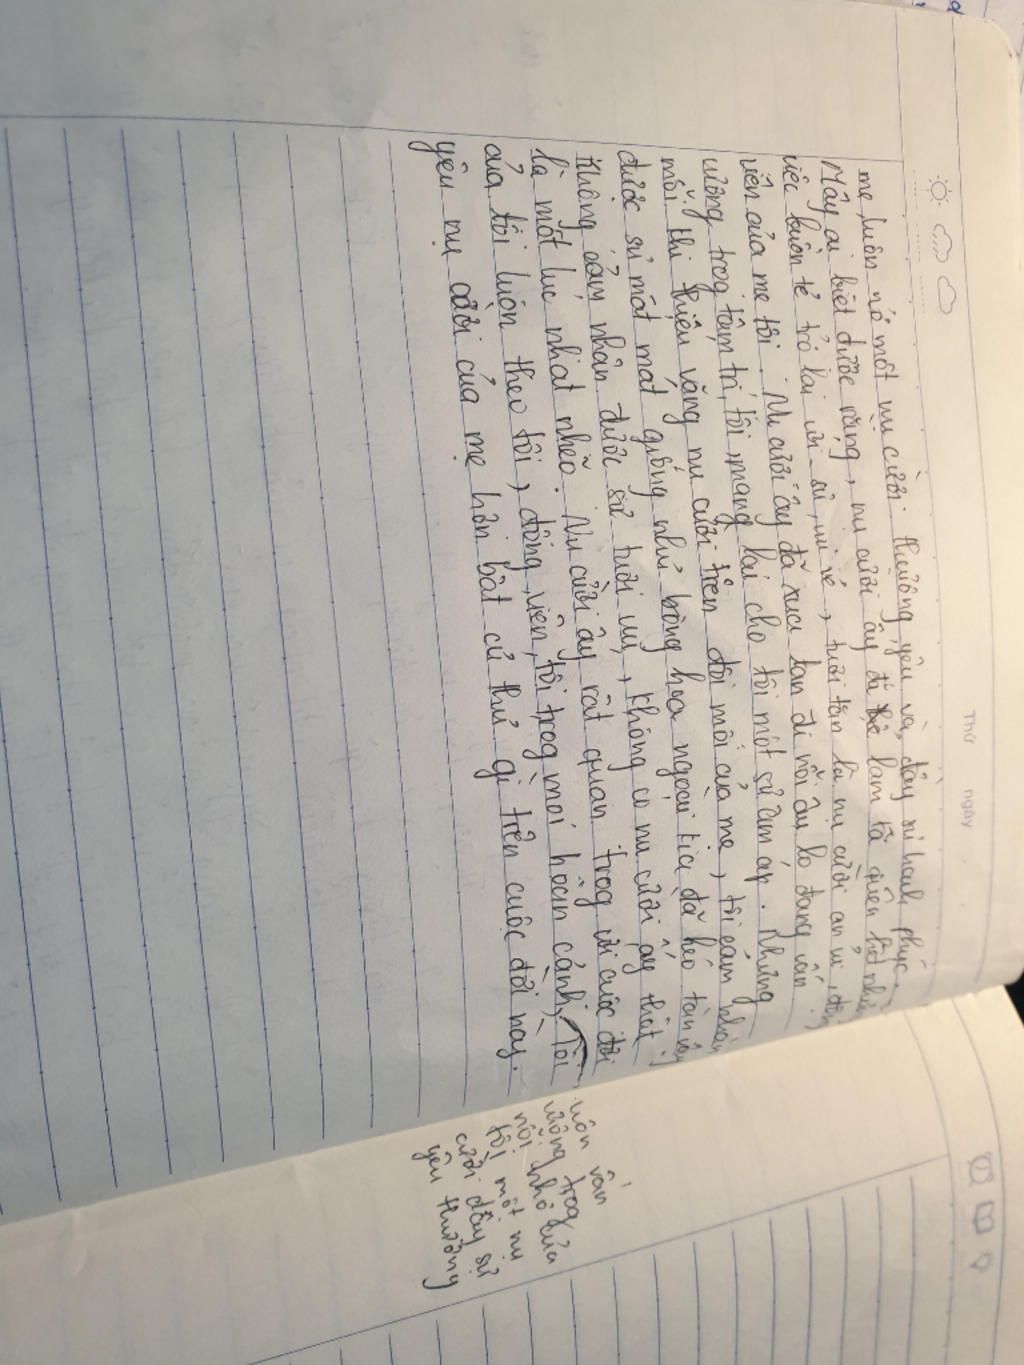 Thứ ngày
mẹ luôn nở một nụ cười thương yêu và đầy sự hạnh phúc.
Mấy ai biết được rằng, nụ cười ấy đã làm ta quên hết
việc buồn tẻ trở lại với sự vui vẻ, tươi tắn là nụ cười an ủi, động
viên của mẹ tôi. Nụ cười ấy đã xua tan đi nỗi âu lo đang vấn
vương trog tâm trí tôi, mang lại cho tôi một sự ấm áp. Nhưng
mỗi khi thiếu vắng nụ cười trên đôi môi của mẹ, tôi cảm nhận
được sự mất mát giống như bông hoa ngoài kia đã héo tàn vậy
không cảm nhận được sự tươi vui, không có nụ cười ấy thật
là một lúc nhạt nhẽo. Nụ cười ấy rất quan trog với cuộc đời
của tôi luôn theo tôi, động viên tôi trog mọi hoàn cảnh. Tôi
yêu nụ cười của mẹ hơn bất cứ thứ gì trên cuộc đời này.
luôn vấn
vương trog
nỗi nhớ của
tôi một nụ
cười đầy sự
yêu thương